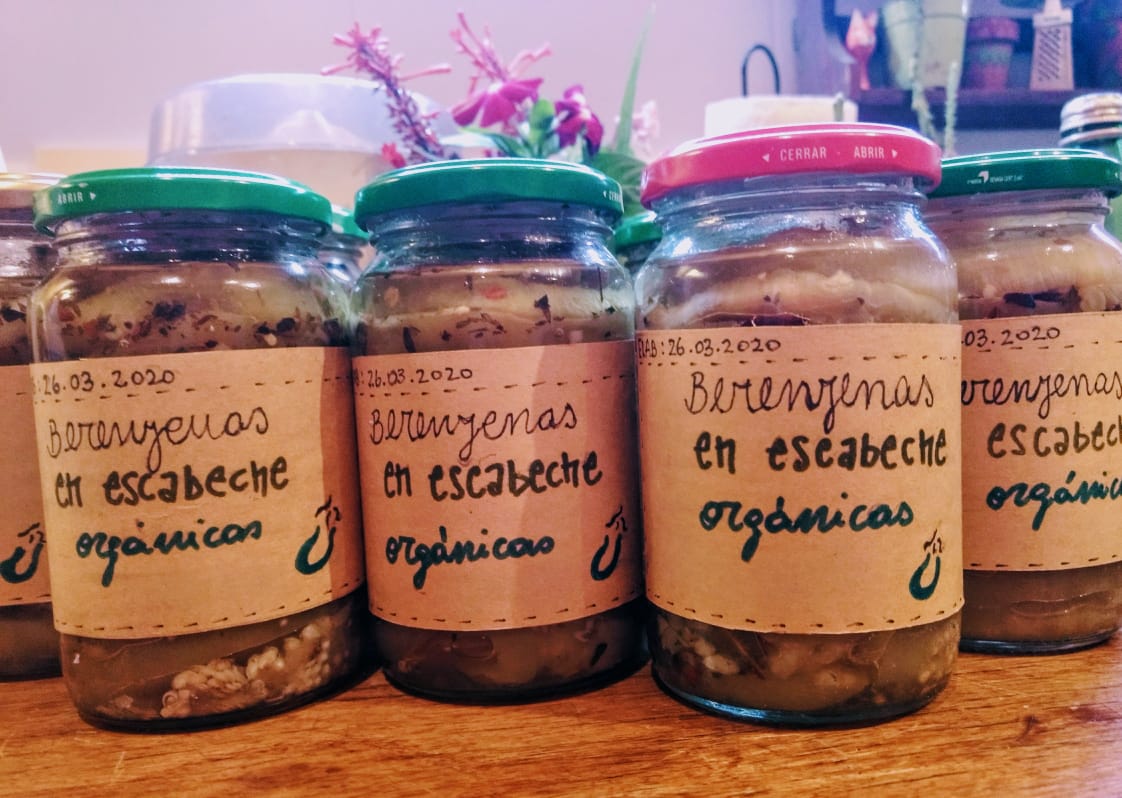 ABRIR
: 26.03.2020
Berenjenas
en escabeche
orgánicas
: 26.03.2020
Berenjenas
en escabeche
orgánicas
CERRAR · ABRIR
ELAB: 26.03.2020
Berenjenas
en escabeche
orgánicas
.03.2020
erenjenas
escabech
orgánic